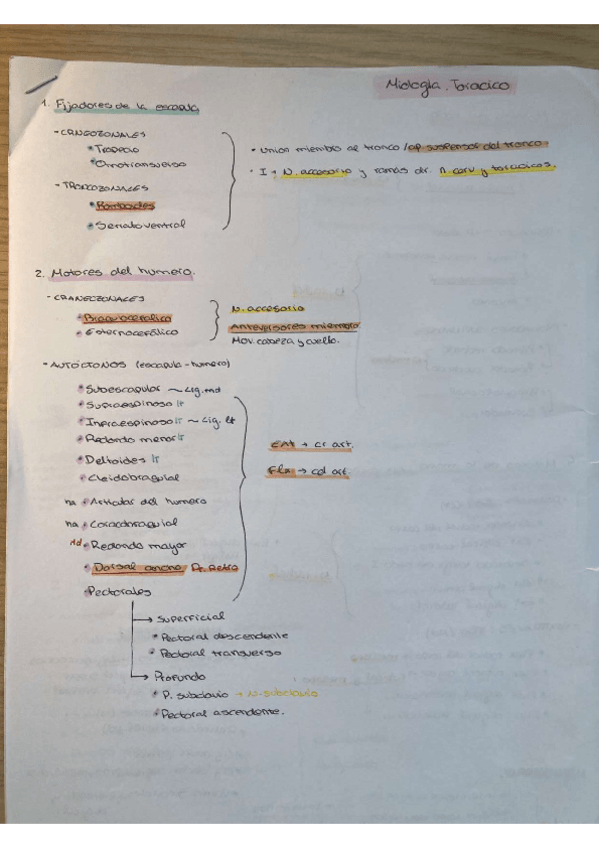 Miología Torácico
1. Fijadores de la escápula
- CRANEOZONALES
• Trapecio
• Omotransverso
- TRONCOZONALES
• Romboides
• Serrato ventral
• Union miembro al tronco / ap. suspensor del tronco.
• I → N. accesorio y ramas dr. n. cerv y toracicos.
2. Motores del humero.
- CRANEOZONALES
• Braquiocefálico
• Esternocefálico
N. accesorio
Anteversores miembro
Mov. cabeza y cuello.
- AUTÓCTONOS (escapula-humero)
• Subescapular ~ Lig. md
• Supraespinoso lt
• Infraespinoso lt ~ Lig. lt
• Redondo menor lt
• Deltoides lt
• Cleidobraquial
na • Articular del humero
na • Coracobraquial
Md • Redondo mayor
• Dorsal ancho Pr. Retro
• Pectorales
→ cr art.
Flx → cd art.
→ Superficial
• Pectoral descendente
• Pectoral transverso
→ Profundo
• P. subclavio → N. subclavio
• Pectoral ascendente.